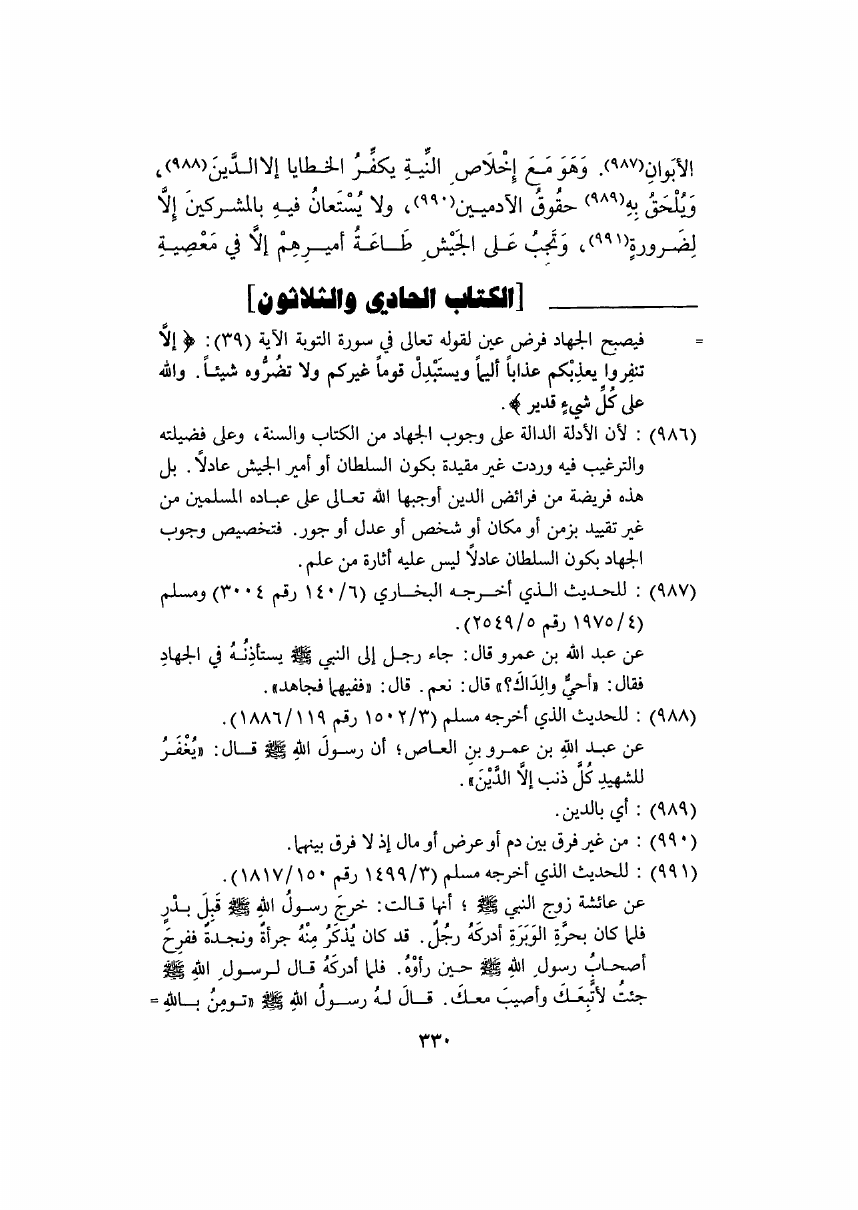 الأبَوانِ(٩٨٧). وَهَوَ مَعَ إخْلَاصِ النِّيةِ يكفِّرُ الخطايا إلا الدَّينَ(٩٨٨)،
وَيُلْحَقُ بِهِ(٩٨٩) حقُوقُ الآدميين(٩٩٠)، ولا يُسْتَعانُ فيهِ بالمشركينَ إلَّا
لِضَرورةٍ(٩٩١)، وَتَجِبُ عَلى الجَيْشِ طَاعَةُ أميرِهِمْ إلَّا في مَعْصِيةِ
[الكتاب الحادي والثلاثون]
= فيصبح الجهاد فرض عين لقوله تعالى في سورة التوبة الآية (٣٩): ﴿ إلَّا
تنفِروا يعذِبْكم عذاباً أليماً ويستَبْدِلْ قوماً غيركم ولا تضُرُّوه شيئاً. والله
على كُلِّ شيءٍ قدير ﴾.
(٩٨٦) : لأن الأدلة الدالة على وجوب الجهاد من الكتاب والسنة، وعلى فضيلته
والترغيب فيه وردت غير مقيدة بكون السلطان أو أمير الجيش عادلاً. بل
هذه فريضة من فرائض الدين أوجبها الله تعالى على عباده المسلمين من
غير تقييد بزمن أو مكان أو شخص أو عدل أو جور. فتخصيص وجوب
الجهاد بكون السلطان عادلاً ليس عليه أثارة من علم.
(٩٨٧) : للحديث الذي أخرجه البخاري (٦/ ١٤٠ رقم ٣٠٠٤) ومسلم
(٤/ ١٩٧٥ رقم ٥/ ٢٥٤٩).
عن عبد الله بن عمرو قال: جاء رجل إلى النبي ﷺ يستأذِنُهُ في الجهادِ
فقال: «أحيٌّ والِدَاكَ؟» قال: نعم. قال: «ففيهما فجاهد».
(٩٨٨) : للحديث الذي أخرجه مسلم (٣/ ١٥٠٢ رقم ١١٩/ ١٨٨٦).
عن عبد اللهِ بن عمرو بنِ العاص؛ أن رسولَ اللهِ ﷺ قال: «يُغْفَرُ
للشهيدِ كُلُّ ذنب إلَّا الدَّيْنَ».
(٩٨٩) : أي بالدين.
(٩٩٠) : من غير فرق بين دم أو عرض أو مال إذ لا فرق بينهما.
(٩٩١) : للحديث الذي أخرجه مسلم (٣/ ١٤٩٩ رقم ١٥٠/ ١٨١٧).
عن عائشة زوج النبي ﷺ ؛ أنها قالت: خرجَ رسولُ اللهِ ﷺ قَبِلَ بدْرٍ
فلما كان بحرَّةِ الوَبَرَةِ أدركَهُ رجُلٌ. قد كان يُذكَرُ مِنْهُ جرأةٌ ونجدةٌ ففرِحَ
أصحابُ رسولِ اللهِ ﷺ حين رأوْهُ. فلما أدركَهُ قال لرسولِ اللهِ ﷺ
جئتُ لأتَّبِعَكَ وأصيبَ معكَ. قالَ لهُ رسولُ اللهِ ﷺ «تومِنُ باللهِ =
٣٣٠